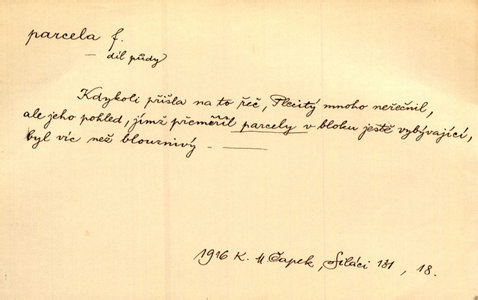 parcela f.
— díl půdy
Kdykoli přišla na to řeč, Plcitý mnoho neřečnil,
ale jeho pohled, jímž přeměřil parcely v bloku ještě vybývající,
byl víc než blouznivý — ———
1916 K. M Čapek, Siláci 131, 18.